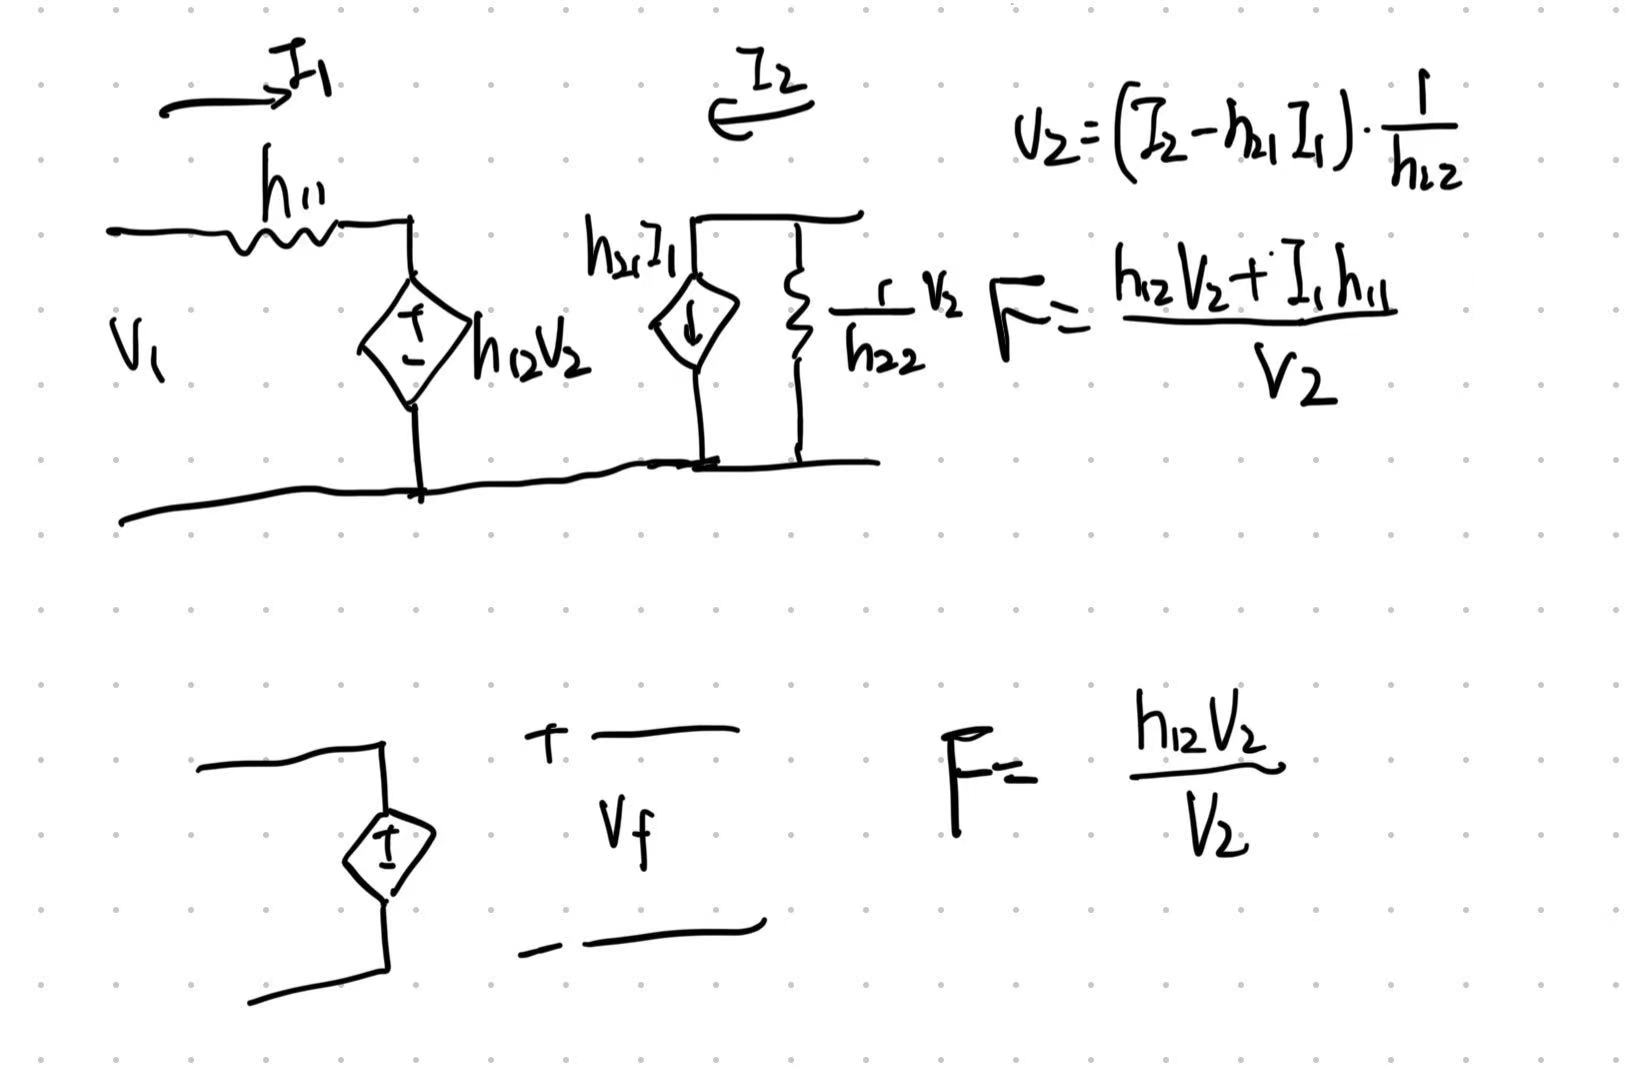 I1
I2
V2 = (I2 - h21 I1) · 1/h22
h11
h21 I1
V1
+
-
h12 V2
1/h22
V2
F = (h12 V2 + I1 h11)/V2
+
-
+
Vf
-
F = h12 V2/V2